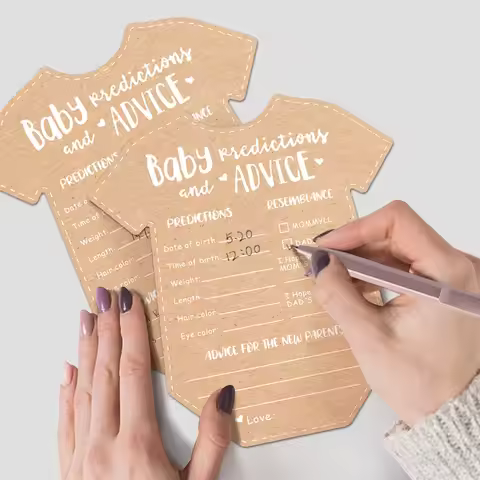 Baby predictions
and ADVICE
PREDICTIONS
Date of
Time of
Weight:
Length
Hair color
Baby predictions
and ADVICE
PREDICTIONS RESEMBLANCE
Date of birth 5.20
Time of birth 12:00
Weight:
Length:
Hair color:
Eye color:
MOM
DAD
I Hope
MOM
I Hope
DAD'S
ADVICE FOR THE NEW PARENTS
Love: